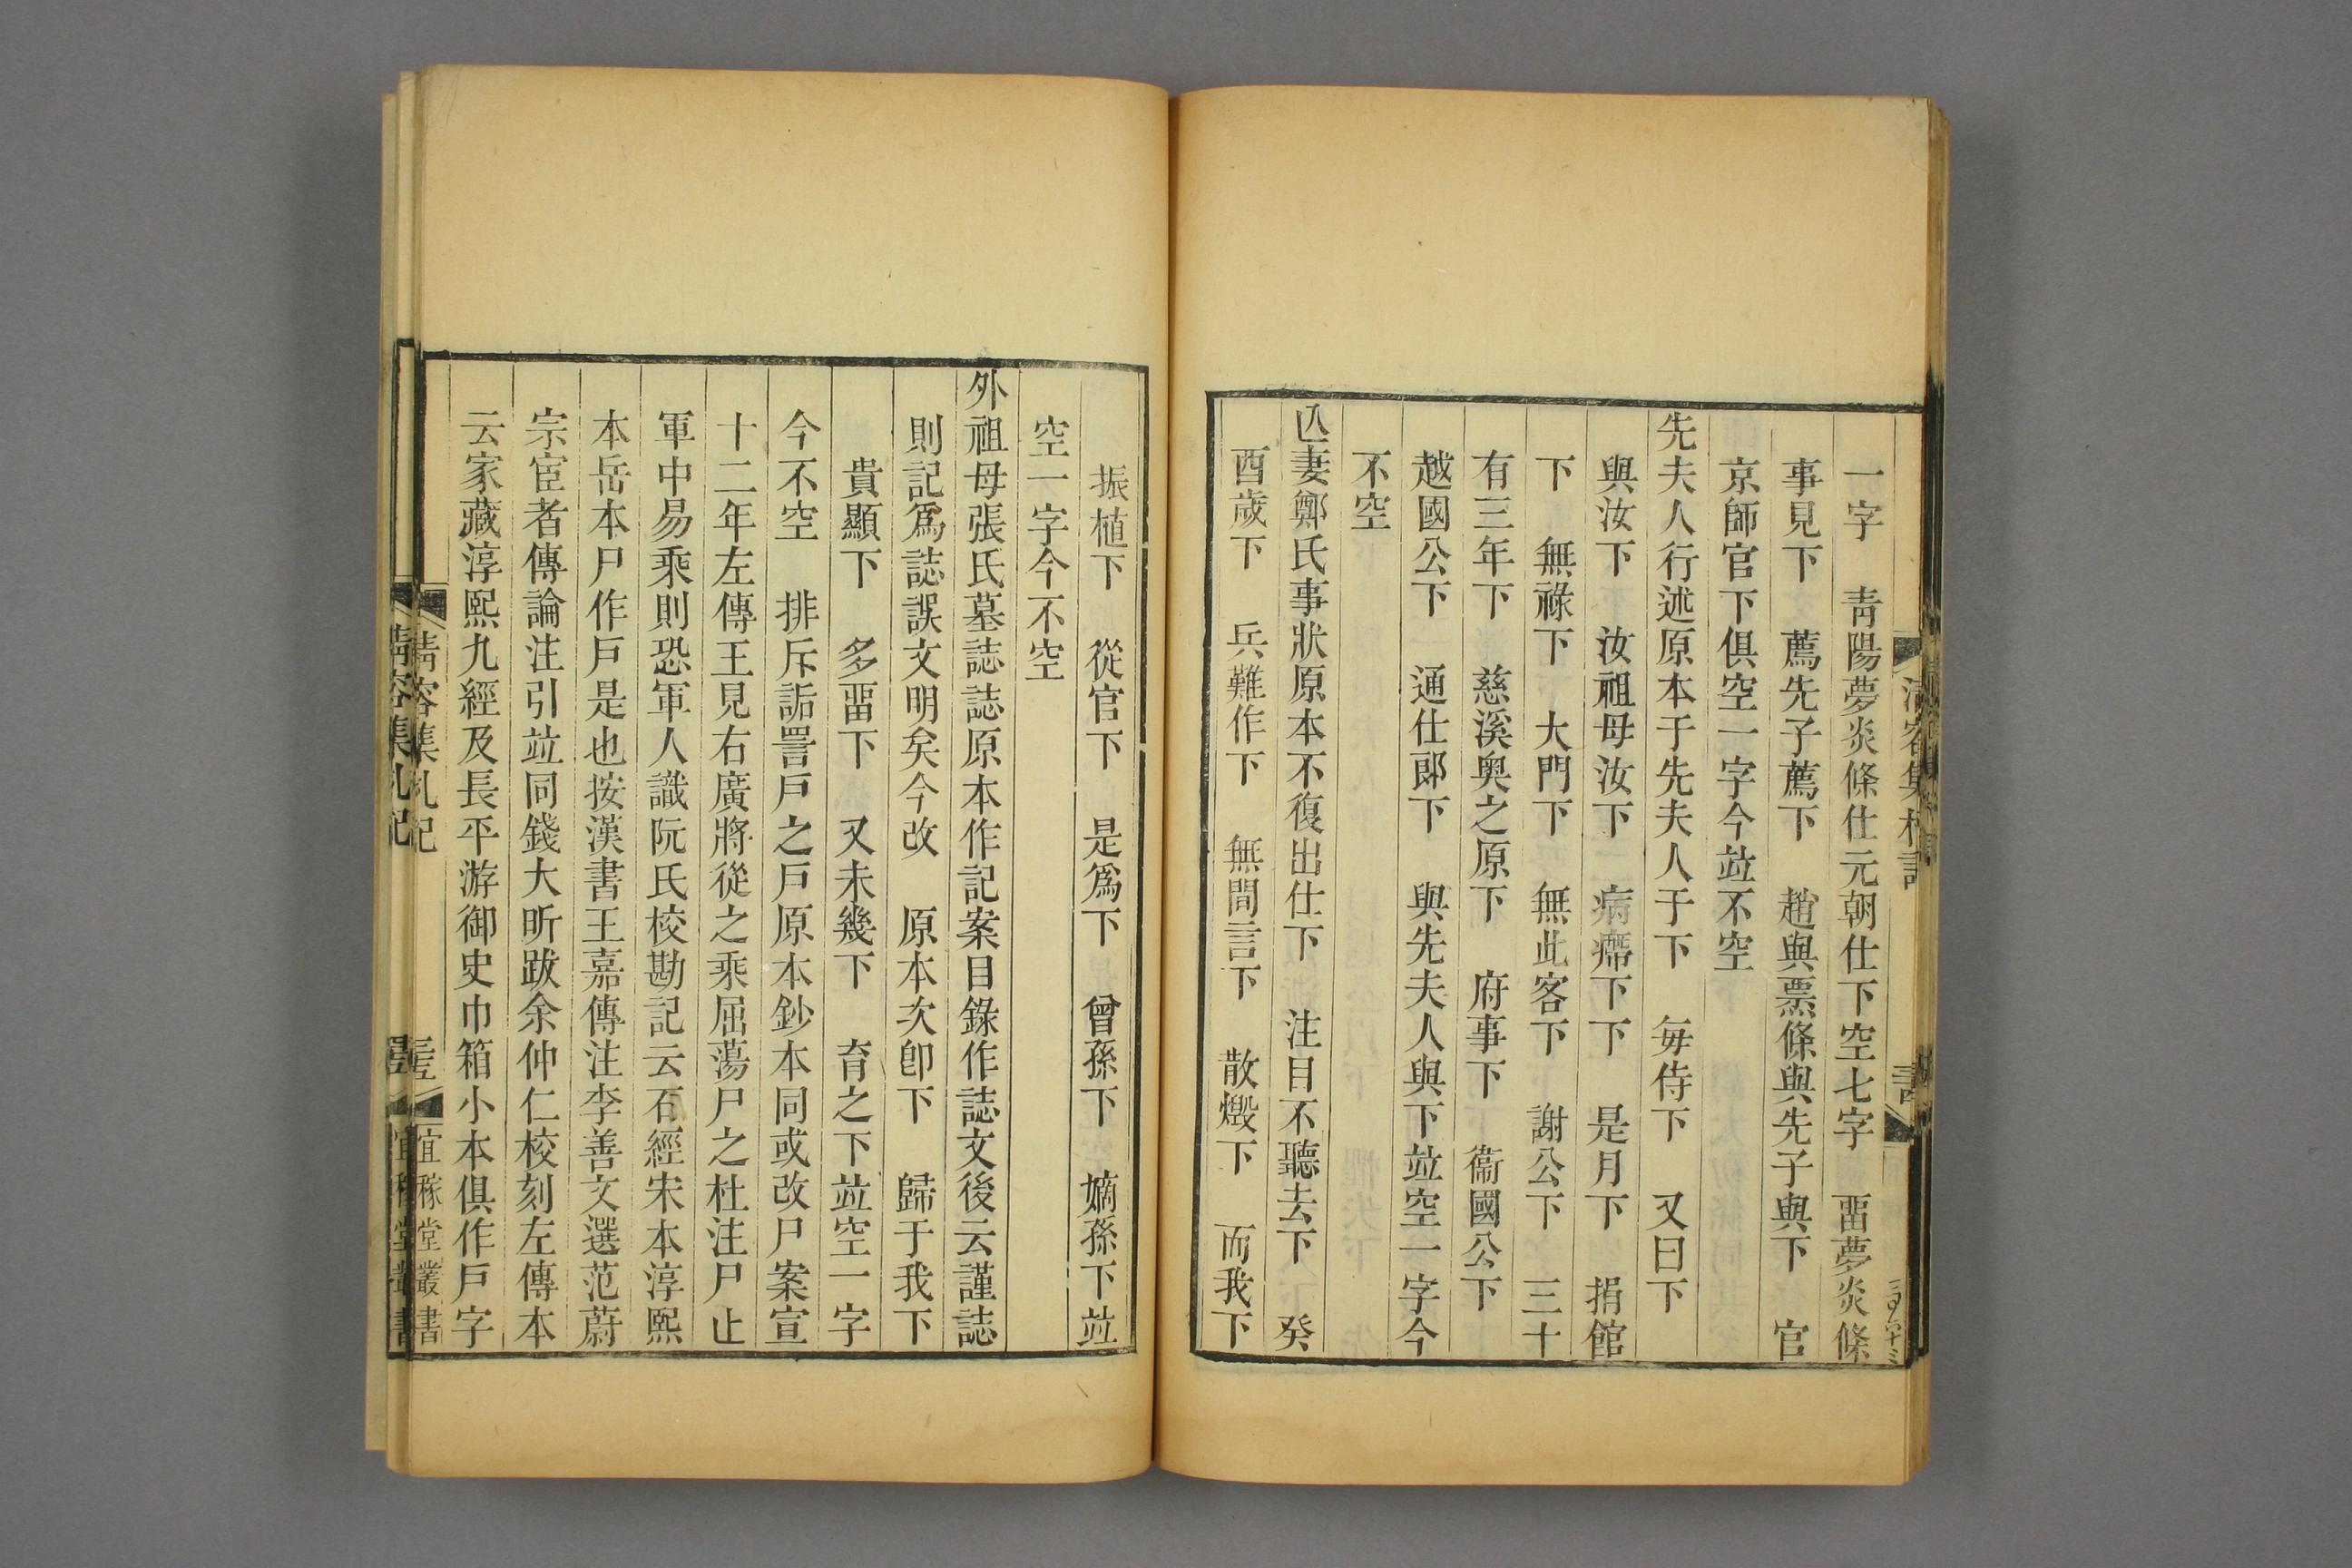 一字　靑陽夢炎條仕元朝仕下空七字　畱夢炎條
事見下　薦先子薦下　趙與票條與先子與下　官
京師官下俱空一字今竝不空
先夫人行述原本于先夫人于下　每侍下　又曰下
與汝下　汝祖母汝下　病癠下下　是月下　捐館
下　無祿下　大門下　無此客下　謝公下　三十
有三年下　慈溪奧之原下　府事下　衞國公下
越國公下　通仕郎下　與先夫人與下竝空一字今
不空
亾妻鄭氏事狀原本不復出仕下　注目不聽去下　癸
酉歲下　兵難作下　無間言下　散燬下　而我下
振植下　從官下　是爲下　曾孫下　嫡孫下竝
空一字今不空
外祖母張氏墓誌誌原本作記案目錄作誌文後云謹誌
則記爲誌誤文明矣今改　原本次卽下　歸于我下
貴顯下　多畱下　又未幾下　育之下竝空一字
今不空　排斥詬詈戸之戸原本鈔本同或改尸案宣
十二年左傳王見右廣將從之乘屈蕩尸之杜注尸止
軍中易乘則恐軍人識阮氏校勘記云石經宋本淳熙
本岳本尸作戸是也按漢書王嘉傳注李善文選范蔚
宗宦者傳論注引竝同錢大昕跋余仲仁校刻左傳本
云家藏淳熙九經及長平游御史巾箱小本俱作戸字
淸容集札記
宜稼堂叢書